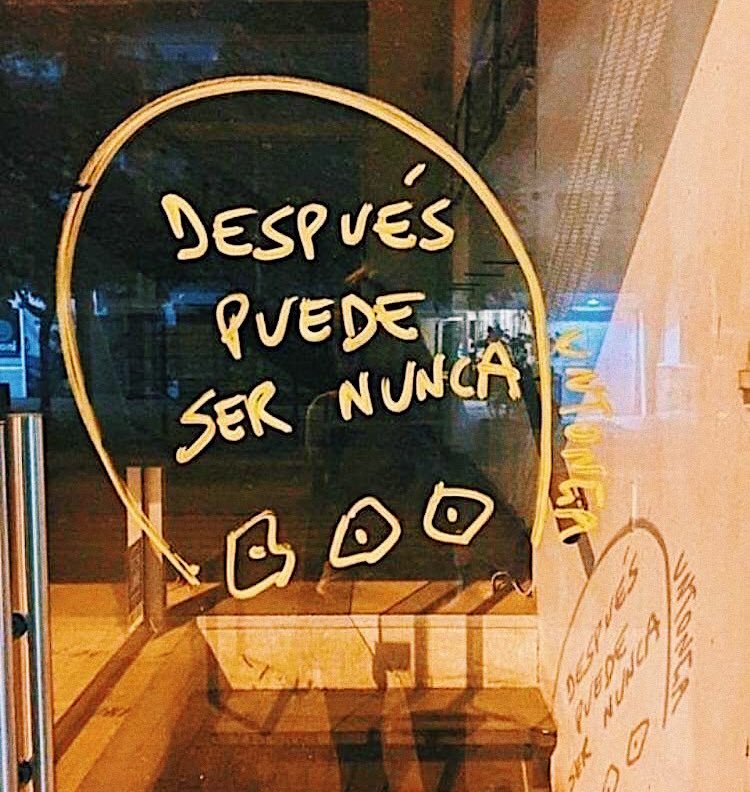 DESPUÉS
PUEDE
SER NUNCA
DESPUÉS
PUEDE
SER NUNCA